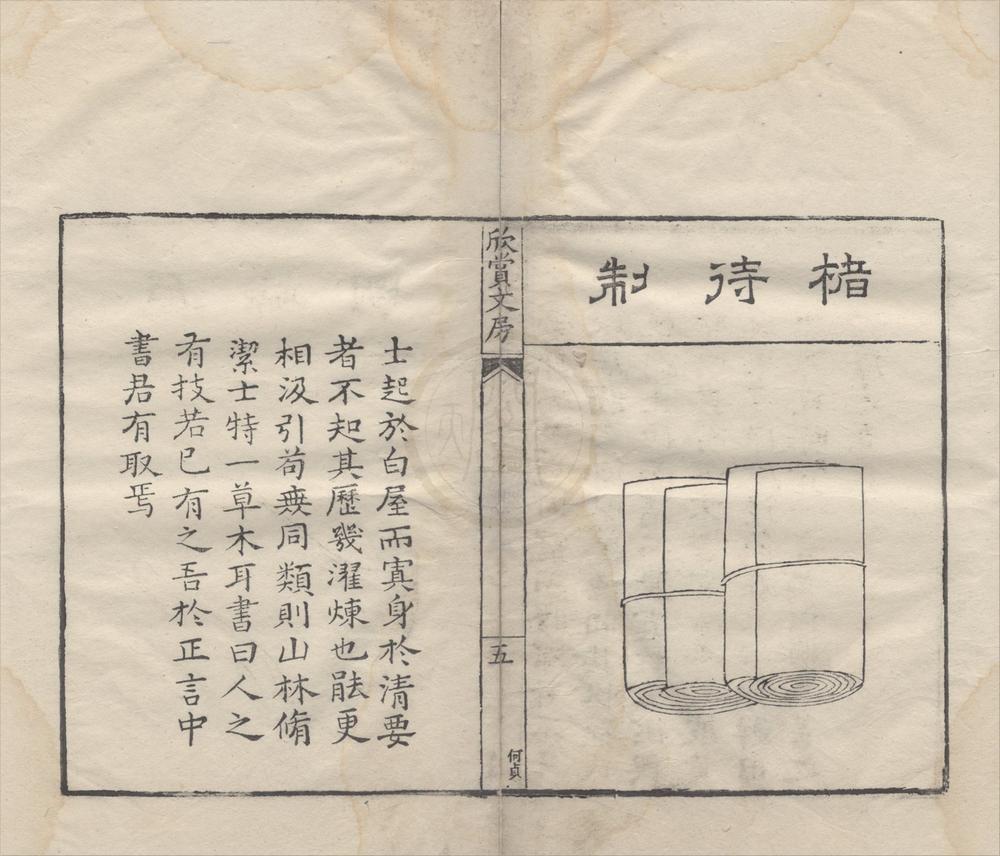 楮待制
欣賞文房
五
何貞
士起於白屋而寘身於清要
者不知其歷幾濯煉也能更
相汲引苟無同類則山林脩
潔士特一草木耳書曰人之
有技若已有之吾於正言中
書君有取焉